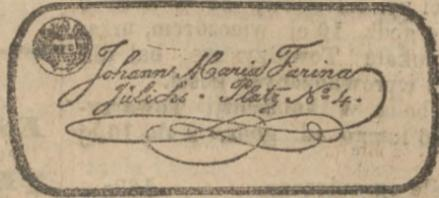 Johann Maria Farina
Jülichs. Platz No 4.